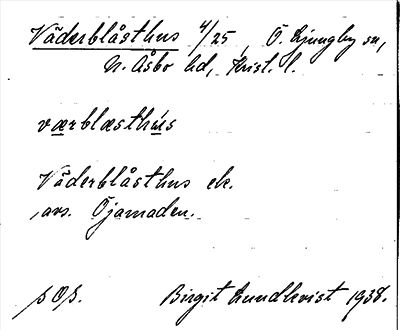 Väderblåsthus 4/25, Ö. Ljungby sn,
N. Åsbo hd, Krist. l.
værblæsthús
Väderblåsthus ek.
, avs. Öjamaden.
Birgit Lundkvist 1938.